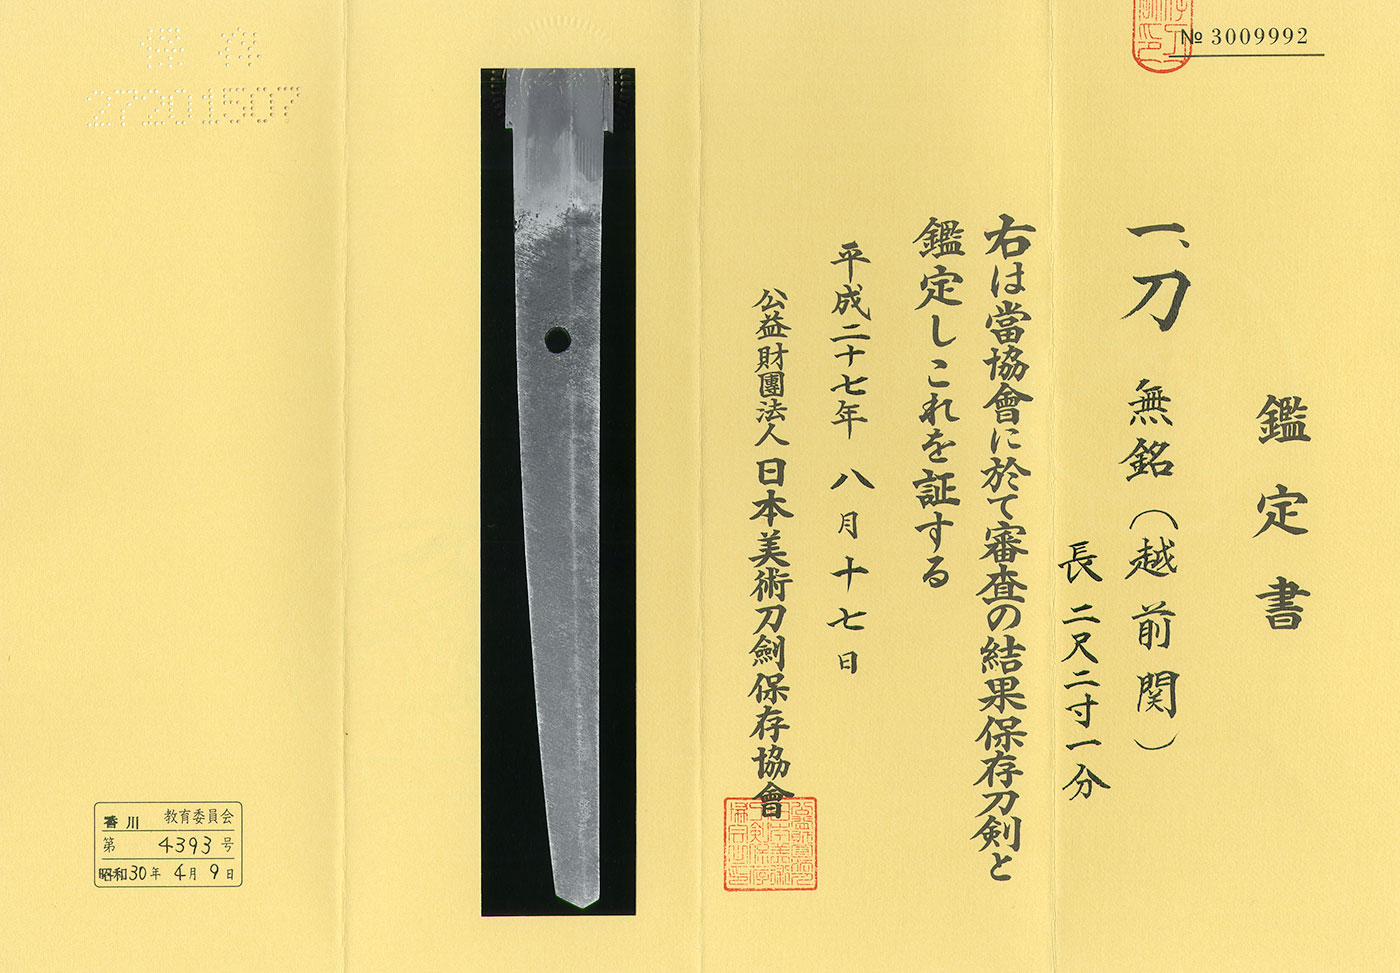 № 3009992
鑑定書
一、刀 無銘(越前関)
長 二尺二寸一分
右は當協會に於て審査の結果保存刀剣と
鑑定しこれを証する
平成二十七年 八月十七日
公益財團法人 日本美術刀劍保存協會
保存
27201507
香川 教育委員会
第 4393 号
昭和30年 4月 9日